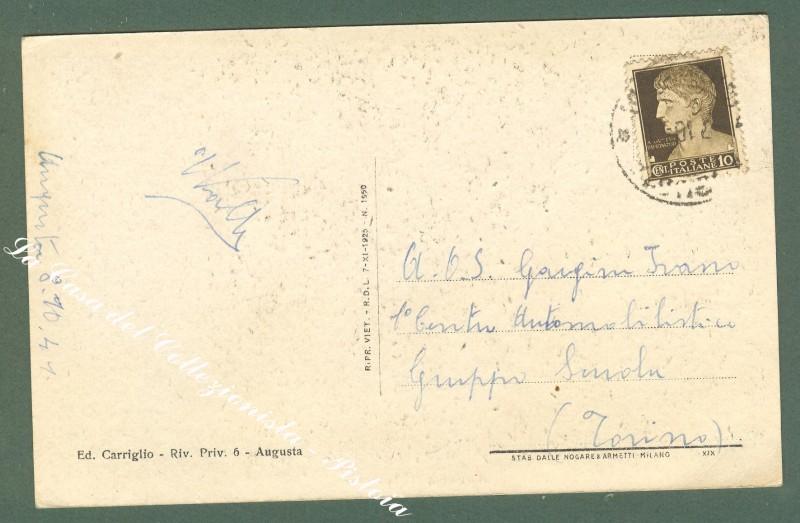 A.O.S.
1° Centro Automobilistico
Gruppo Scuola
(Torino)
Augusta 8.10.41.
POSTE
ITALIANE
CENT. 10
RIPR. VIET. - R.D.L. 7-XI-1925 - N. 1550
Ed. Carriglio - Riv. Priv. 6 - Augusta
STAB. DALLE NOGARE & ARMETTI - MILANO XIX
La Casa del Collezionista - Pistoia